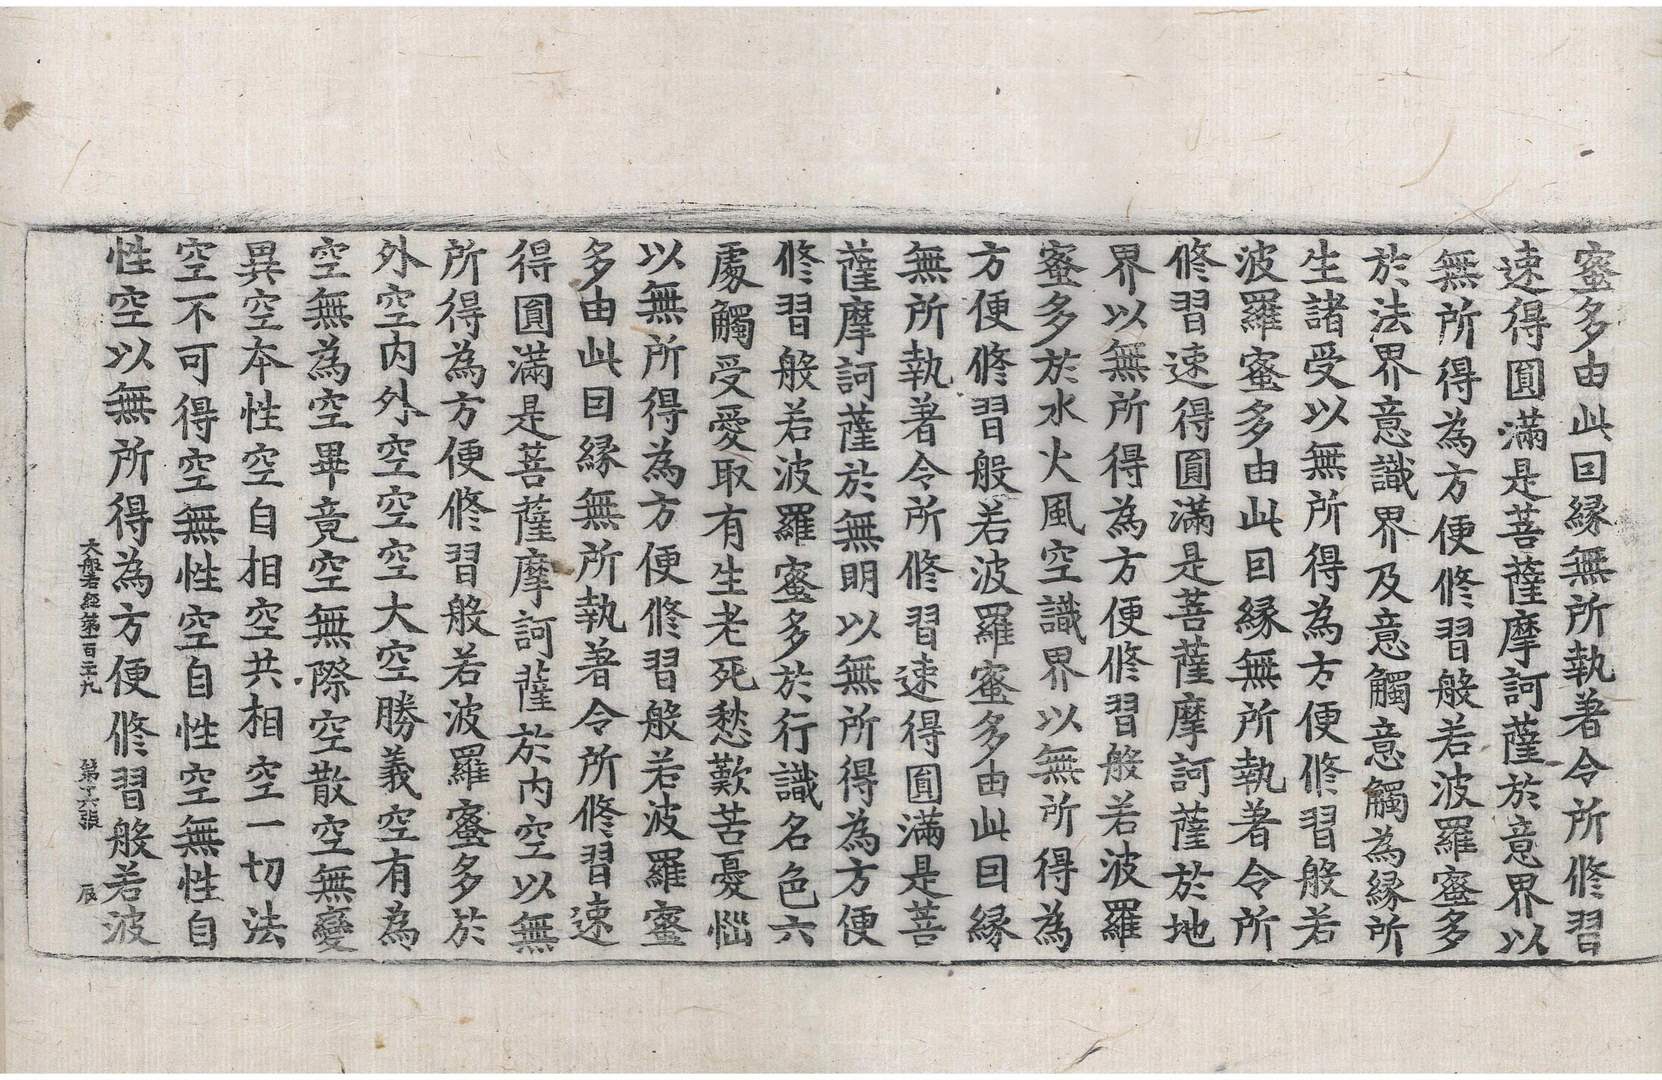 蜜多由此因緣無所執著令所修習
速得圓滿是菩薩摩訶薩於意界以
無所得為方便修習般若波羅蜜多
於法界意識界及意觸意觸為緣所
生諸受以無所得為方便修習般若
波羅蜜多由此因緣無所執著令所
修習速得圓滿是菩薩摩訶薩於地
界以無所得為方便修習般若波羅
蜜多於水火風空識界以無所得為
方便修習般若波羅蜜多由此因緣
無所執著令所修習速得圓滿是菩
薩摩訶薩於無明以無所得為方便
修習般若波羅蜜多於行識名色六
處觸受愛取有生老死愁歎苦憂惱
以無所得為方便修習般若波羅蜜
多由此因緣無所執著令所修習速
得圓滿是菩薩摩訶薩於內空以無
所得為方便修習般若波羅蜜多於
外空內外空空空大空勝義空有為
空無為空畢竟空無際空散空無變
異空本性空自相空共相空一切法
空不可得空無性空自性空無性自
性空以無所得為方便修習般若波
大般若經第一百二九 第十六張 辰